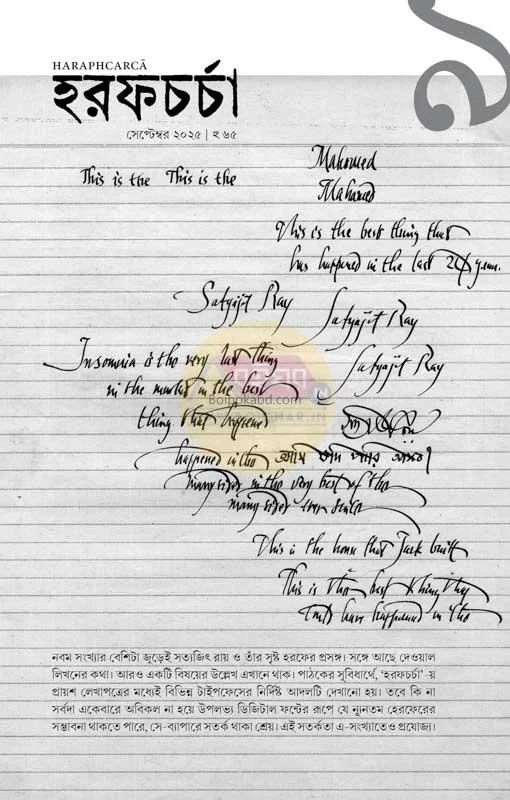 HARAPHCARCĀ
হরফচর্চা
সেপ্টেম্বর ২০২৫ | ₹ ৬৫
৯
This is the This is the
Mahomed
Mahomed
This is the best thing that
has happened in the last 20 years.
Satyajit Ray
Satyajit Ray
Insomnia is the very last thing
Satyajit Ray
in the market in the best
Boipokabd.com
thing that happened
happened in the
many sides in the very best of the
many sides ever since
This is the house that Jack built
This is the best thing that
have happened in the
নবম সংখ্যার বেশিটা জুড়েই সত্যজিৎ রায় ও তাঁর সৃষ্ট হরফের প্রসঙ্গ। সঙ্গে আছে দেওয়াল
লিখনের কথা। আরও একটি বিষয়ের উল্লেখ এখানে থাক। পাঠকের সুবিধার্থে, ‘হরফচর্চা’-য়
প্রায়শ লেখাপত্রের মধ্যেই বিভিন্ন টাইপফেসের নির্দিষ্ট আদলটি দেখানো হয়। তবে কি না
সর্বদা একেবারে অবিকল না হয়ে উপলভ্য ডিজিটাল ফন্টের রূপে যে ন্যূনতম হেরফেরের
সম্ভাবনা থাকতে পারে, সে-ব্যাপারে সতর্ক থাকা শ্রেয়। এই সতর্কতা এ-সংখ্যাতেও প্রযোজ্য।